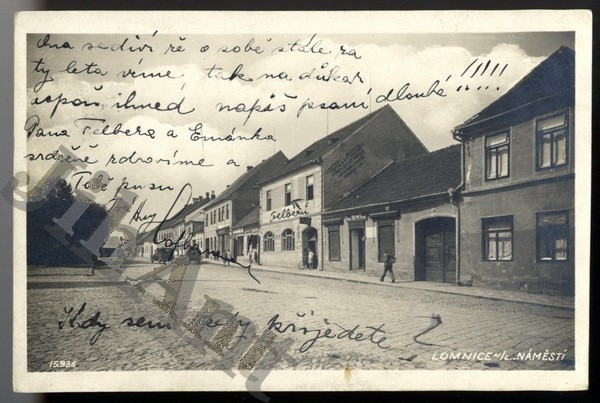 dna sedivi že o sobě stále za
ty leta víme, tak na důkaz
aspoň ihned napiš psaní dlouhá !!!!!
Pana Felbera a Emánka
srdečně zdravíme a
Tobě pusu
Felberů
Kdy sem tedy přijedete ?
15936
LOMNICE n/L. NÁMĚSTÍ